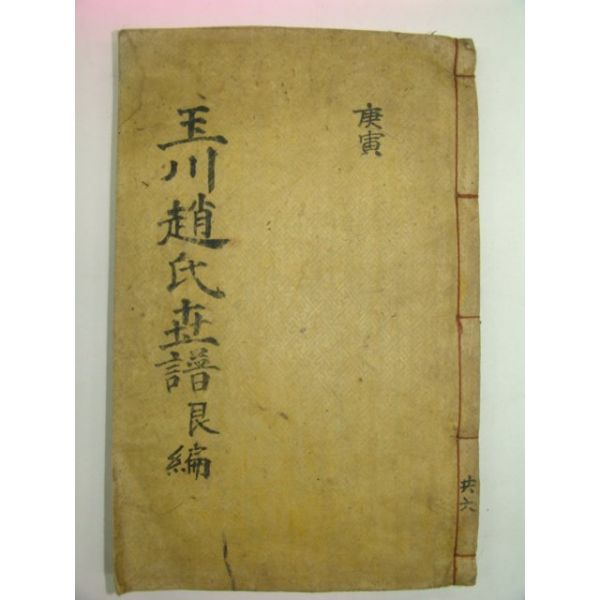 庚寅
玉川趙氏世譜艮編
共六